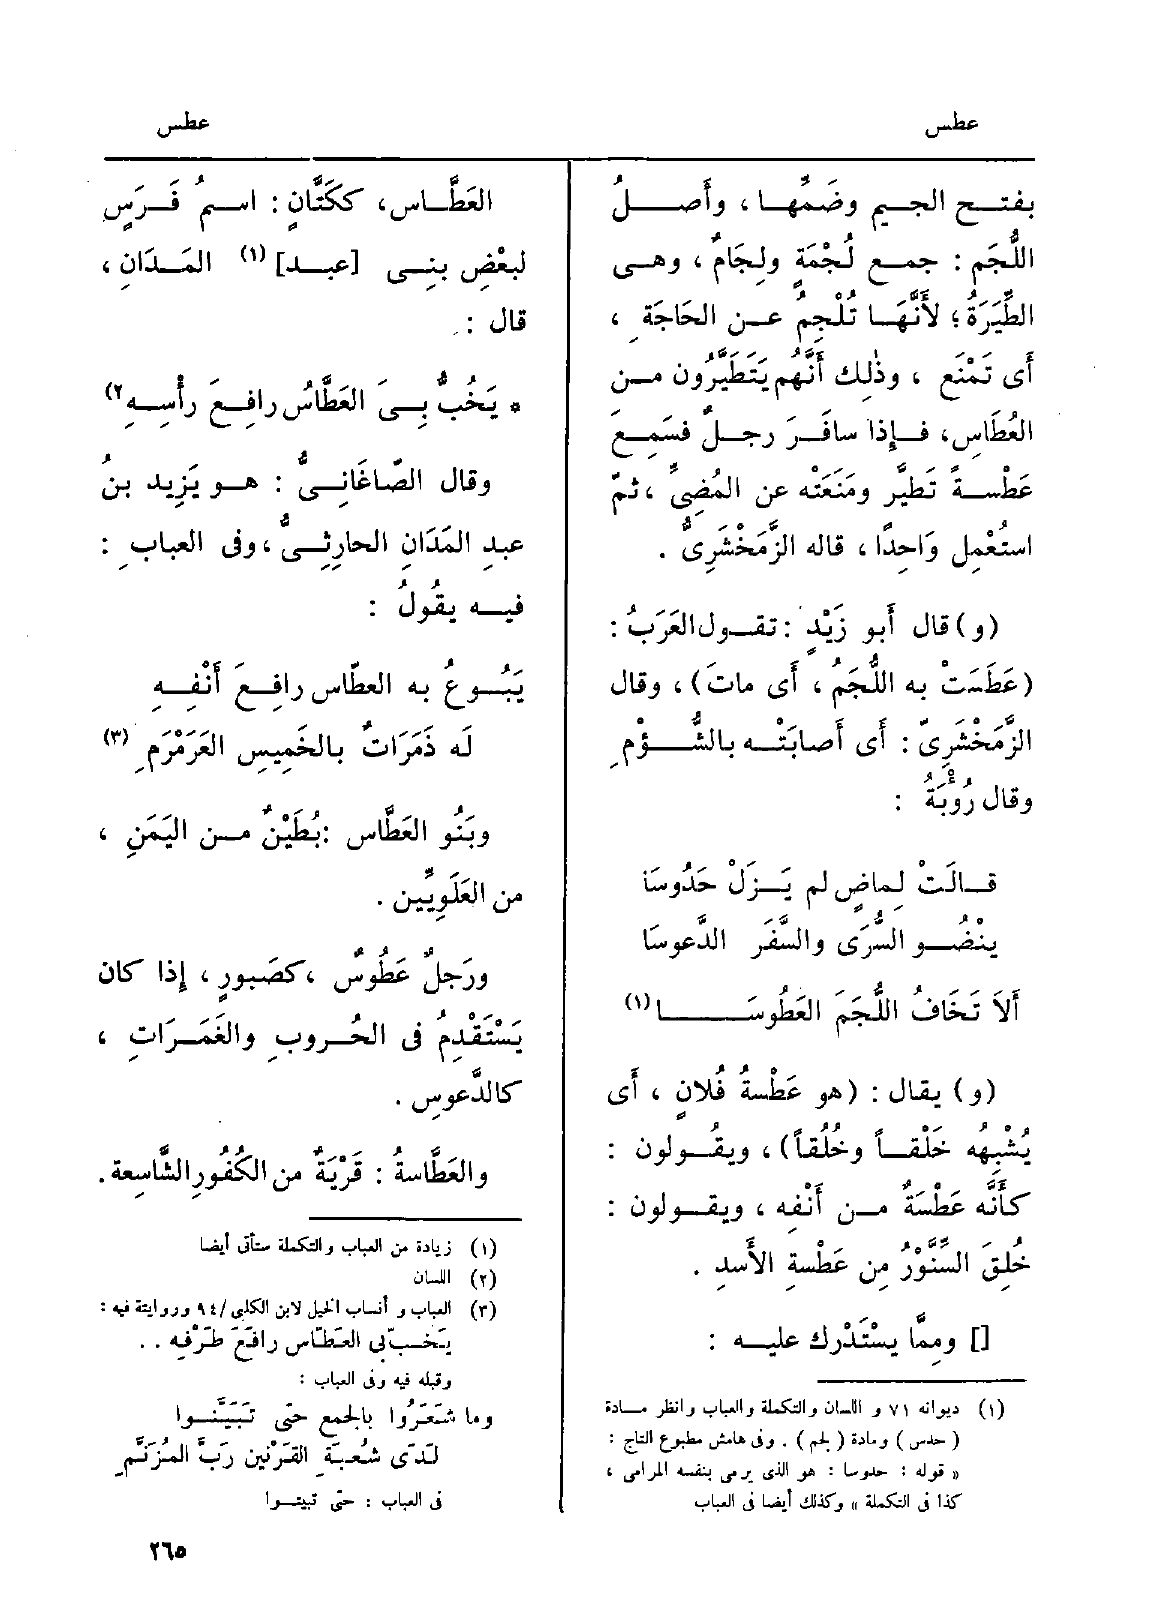 عطس
عطس
بفتـح الجـيم وضَمِّهـا ، وأَصـلُ
اللُّجَمِ : جمـع لُجْمَةٍ ولِجَامٌ ، وهـى
الطِّيَرَةُ ؛ لأَنَّهَـا تُلْجِمُ عـن الحَاجَةِ ،
أَى تَمْنَع ، وذٰلِك أَنَّهُم يَتَطَيَّرُون مـن
العُطَاسِ ، فـإِذا سافَـرَ رجـلٌ فسَمِـعَ
عَطْسـةً تَطيَّر ومَنَعَتْه عن المُضِىِّ ، ثمّ
استُعْمِل وَاحِدًا ، قاله الزَّمَخْشَرِىُّ .
(و) قال أَبو زَيْدٍ : تقـول العَرَبُ :
(عَطَسَتْ به اللُّجَمُ ، أَى ماتَ) ، وقال
الزَّمَخْشَرِىّ : أَى أَصابَتْـه بالشُّـؤْمِ
وقال رُؤْبَةُ :
قـالَتْ لِماضٍ لم يَـزَلْ حَدُوسَا
ينْضُـو السُّرَى والسَّفَر الدَّعوسَا
أَلاَ تَخَافُ اللُّجَمَ العَطُوسَـا (١)
(و) يقال : (هو عَطْسةُ فُلانٍ ، أَى
يُشْبِهُه خَلْقـاً وخُلُقاً) ، ويقُـولون :
كأَنَّه عَطْسَةٌ مـن أَنْفِه ، ويقـولون :
خُلِقَ السِّنَّوْرُ مِن عَطْسةِ الأَسدِ .
[] ومِمَّا يسْتَدْرك عليـه :
(١) ديوانه ٧١ و اللسان والتكملة والعباب وانظر مـادة
( حدس ) ومادة ( لجم ) . وفى هامش مطبوع التاج :
« قوله : حدوسا : هو الذى يرمى بنفسه المرامى ،
كذا فى التكملة » وكذلك أيضا فى العباب
العَطَّـاس ، ككَتَّانٍ : اسـمُ فَـرَسٍ
لبعْضِ بنِـى [عبـد] (١) المَـدَانِ ،
قال :
* يَخُبُّ بِـىَ العَطَّاسُ رافِـعَ رأْسِـهِ (٢)
وقال الصّاغَانِـىُّ : هـو يَزِيد بنُ
عبدِ المَدَانِ الحارِثِـىُّ ، وفى العبابِ :
فيـه يقُولُ :
يَبُـوعُ به العطّاس رافِـعَ أَنْفِـهِ
لَه ذَمَرَاتٌ بالخَمِيسِ العَرَمْرَمِ (٣)
وبَنُو العَطَّاس : بُطَيْنٌ مـن اليَمَنِ ،
من العَلَوِيِّين .
ورَجلٌ عَطُوسٌ ، كصَبورٍ ، إِذا كان
يَسْتَقْدِمُ فى الحُـروبِ والغَمَـرَاتِ ،
كالدَّعوسِ .
والعَطَّاسةُ : قَرْيَةٌ من الكُفُورِ الشَّاسِعة .
(١) زيادة من العباب والتكملة ستأتى أيضا
(٢) اللسان
(٣) العباب و أنساب الخيل لابن الكلبى / ٩٤ وروايتة فيه :
يَخُـبّ بى العَطّاس رافِعَ طَرْفِه . .
وقبله فيه وفى العباب :
وما شَعَرُوا بالجمع حتَّى تَبَيَّنُـوا
لَدَى شُعبَةِ القَرْنين رَبَّ المُزنَّمِ
فى العباب : حتى تبيتـوا
٢٦٥